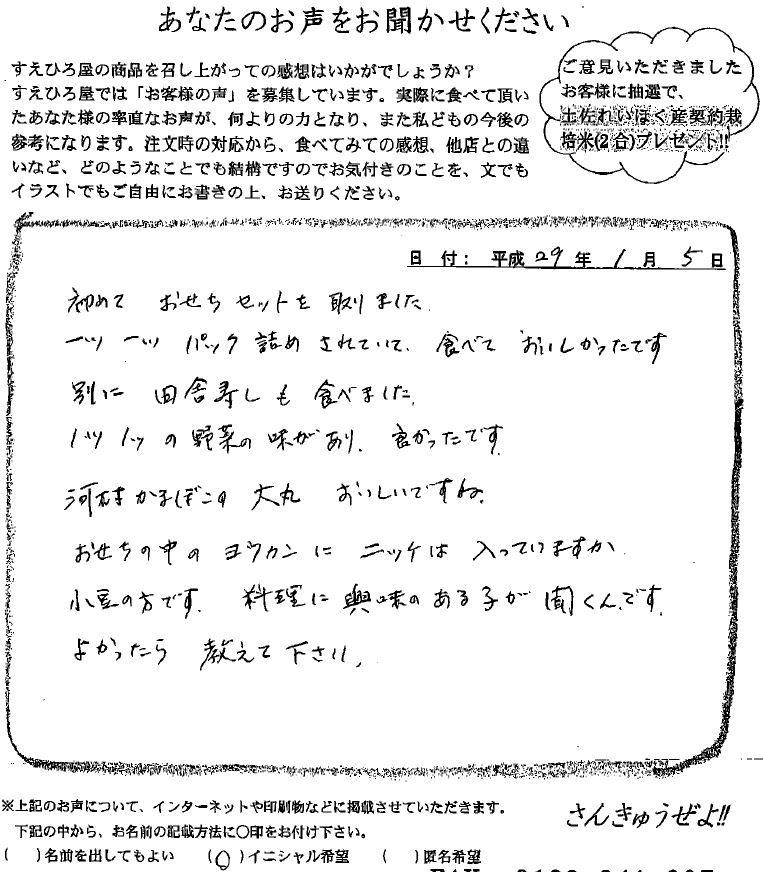 あなたのお声をお聞かせください
すえひろ屋の商品を召し上がっての感想はいかがでしょうか？
すえひろ屋では「お客様の声」を募集しています。実際に食べて頂い
たあなた様の率直なお声が、何よりの力となり、また私どもの今後の
参考になります。注文時の対応から、食べてみての感想、他店との違
いなど、どのようなことでも結構ですのでお気付きのことを、文でも
イラストでもご自由にお書きの上、お送りください。
ご意見いただきました
お客様に抽選で、
土佐れいほく産契約栽
培米(2合)プレゼント!!
日 付： 平成 29 年 1 月 5 日
初めて おせちセットを 取りました
一ツ 一ツ パック 詰め されていて、食べて おいしかったです
別に 田舎寿しも 食べました。
1ツ1ツの野菜の味があり、良かったです。
河村かまぼこの 大丸 おいしいですね。
おせちの中の ヨウカンに ニッケは 入っていますか
小豆の方です。 料理に興味のある子が聞くんです。
よかったら 教えて下さい。
※上記のお声について、インターネットや印刷物などに掲載させていただきます。
下記の中から、お名前の記載方法に○印をお付け下さい。
( )名前を出してもよい (○)イニシャル希望 ( )匿名希望
さんきゅうぜよ!!